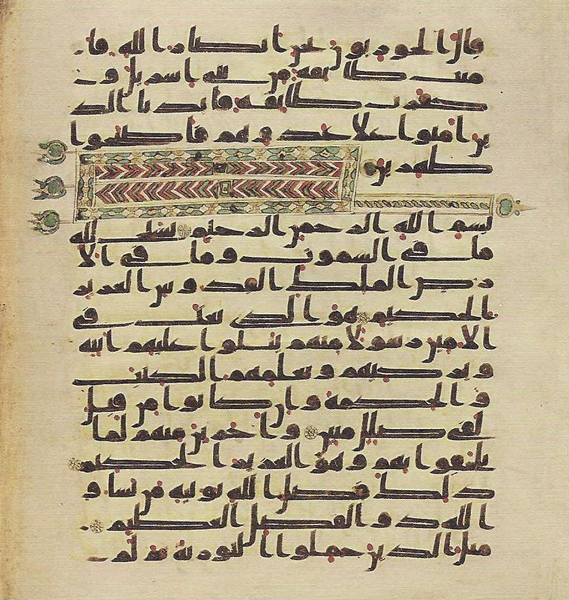 قال الحوريون نحن انصار الله فا
منت طايفة من بني اسريل و
كفرت طايفة فايدنا الذ
ين امنوا علا عدوهم فاصبحوا
ظهرين
بسم الله الرحمن الرحيم يسبح لله
ما في السموت وما في الا
رض الملك القدوس العزيز
الحكيم هو الذي بعث في
الامين رسولا منهم يتلوا عليهم ايته
ويزكيهم ويعلمهم الكتب
والحكمة وان كانوا من قبل
لفي ضلل مبين واخرين منهم لما
يلحقوا بهم وهو العزيز الحكيم
ذلك فضل الله يوتيه من يشا و
الله ذو الفضل العظيم
مثل الذين حملوا التورية ثم لم